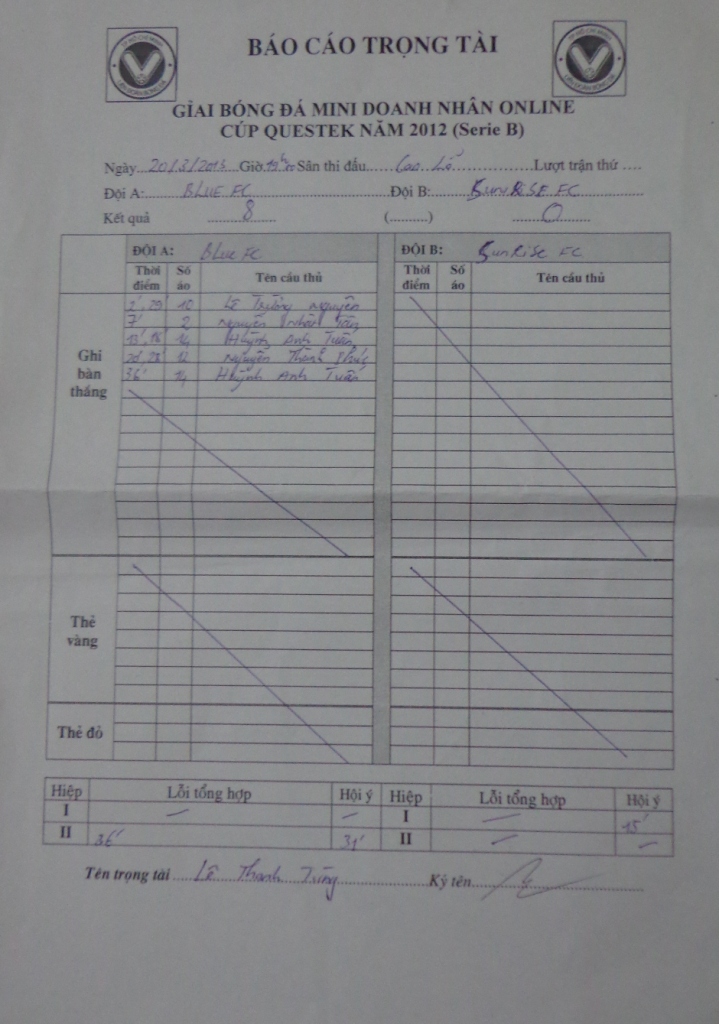 BÁO CÁO TRỌNG TÀI
GIẢI BÓNG ĐÁ MINI DOANH NHÂN ONLINE
CÚP QUESTEK NĂM 2012 (Serie B)
Ngày 20/3/2013 Giờ Sân thi đấu Cao Lỗ Lượt trận thứ
Đội A: BLUE FC Đội B: SUNRISE FC
Kết quả 8 (..........) 0
ĐỘI A: BLUE FC ĐỘI B: SUNRISE FC
Thời điểm Số áo Tên cầu thủ Thời điểm Số áo Tên cầu thủ
Ghi bàn thắng
2', 29' 10 Lê Trường Nguyên
7' 2 Nguyễn Nhân
13', 18' 14 Huỳnh Anh Tuấn
20', 28' 12 Nguyễn Thành
36' 14 Huỳnh Anh Tuấn
Thẻ vàng
Thẻ đỏ
Hiệp Lỗi tổng hợp Hội ý Hiệp Lỗi tổng hợp Hội ý
I — — I — 15'
II 36' 31' II — —
Tên trọng tài Lê Thanh Tùng Ký tên